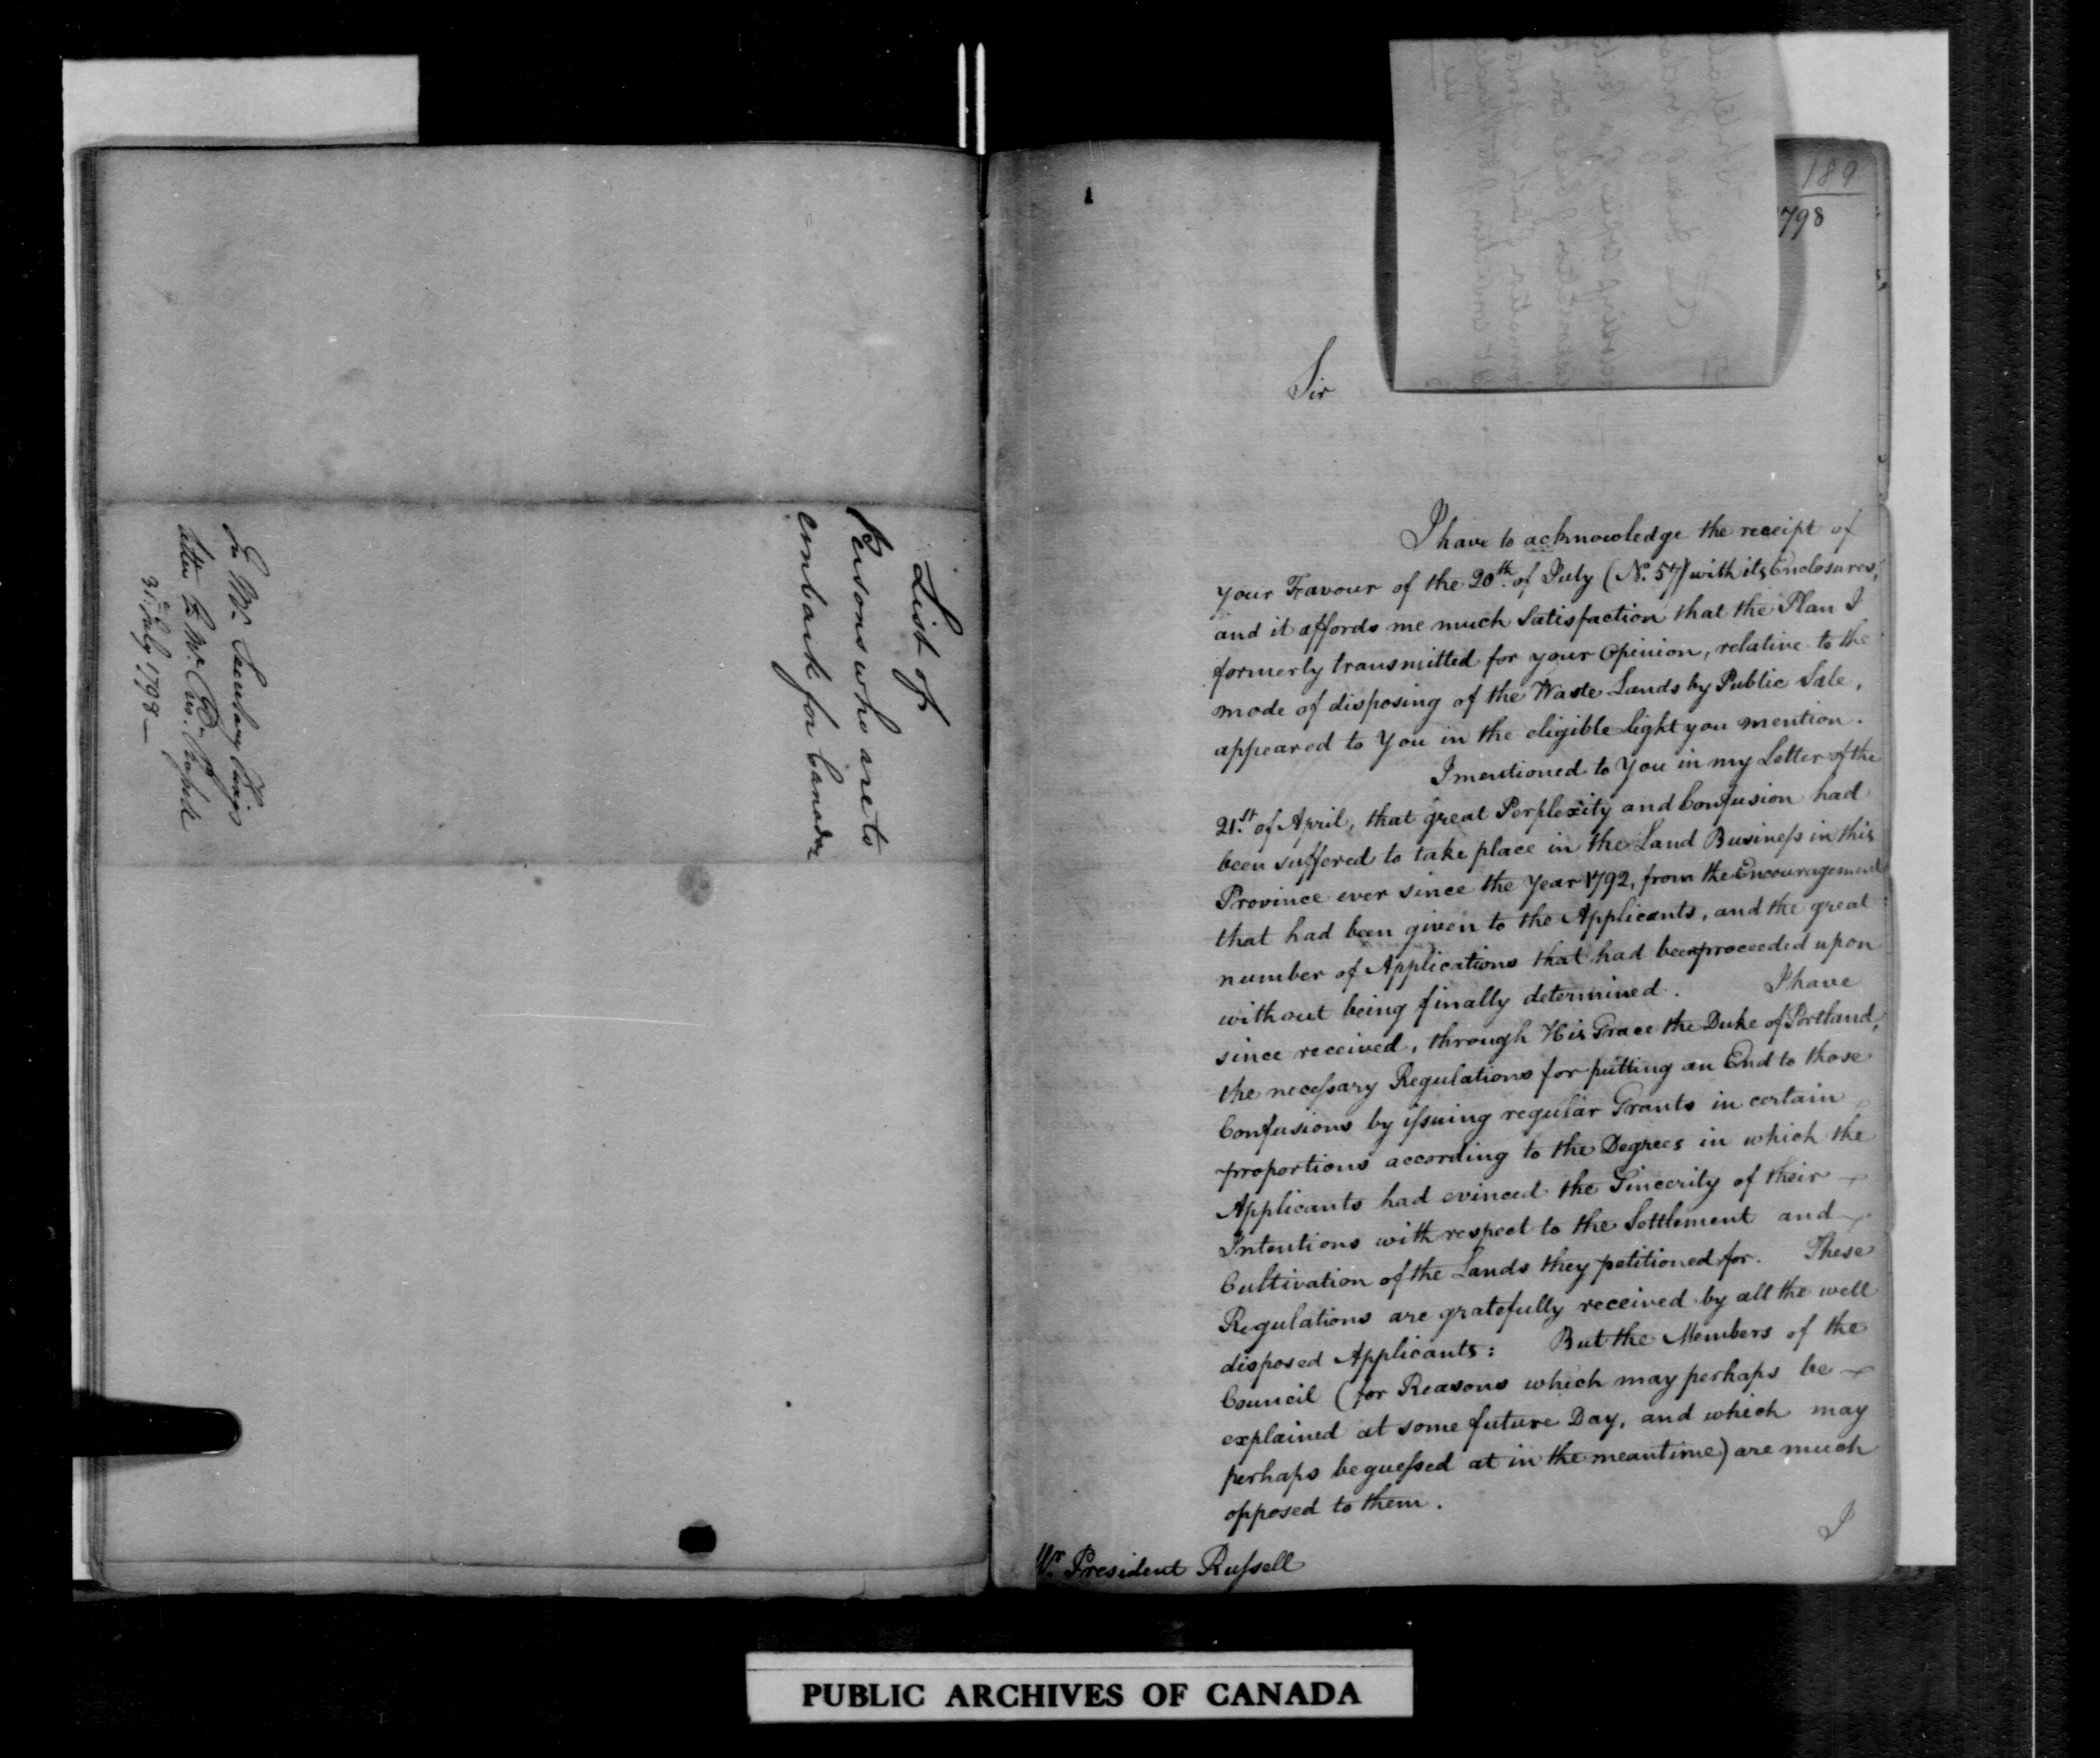 List of
Persons who are to
embark for Canada
In Mr. Secretary
letter to Mr.
31st July 1798 —
189
798
Sir
I have to acknowledge the receipt of
your Favour of the 20th. of July (No. 57) with its Enclosures,
and it affords me much Satisfaction that the Plan I
formerly transmitted for your Opinion, relative to the
mode of disposing of the Waste Lands by Public Sale,
appeared to You in the eligible light you mention.
I mentioned to You in my Letter of the
21st. of April, that great Perplexity and Confusion had
been suffered to take place in the Land Business in this
Province ever since the Year 1792, from the Encouragement
that had been given to the Applicants, and the great
number of Applications that had been proceeded upon
without being finally determined. I have
since received, through His Grace the Duke of Portland,
the necessary Regulations for putting an End to those
Confusions by issuing regular Grants in certain
proportions according to the Degrees in which the
Applicants had evinced the Sincerity of their
Intentions with respect to the Settlement and
Cultivation of the Lands they petitioned for. These
Regulations are gratefully received by all the well
disposed Applicants: But the Members of the
Council (for Reasons which may perhaps be
explained at some future Day, and which may
perhaps be guessed at in the meantime) are much
opposed to them.
I
Mr. President Russell
PUBLIC ARCHIVES OF CANADA